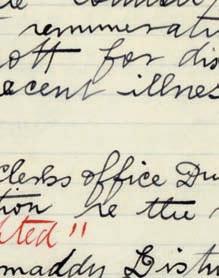 remunerati
ott for dis
ecent illnes
Clerks office Du
tion re the
ted"
maddy List